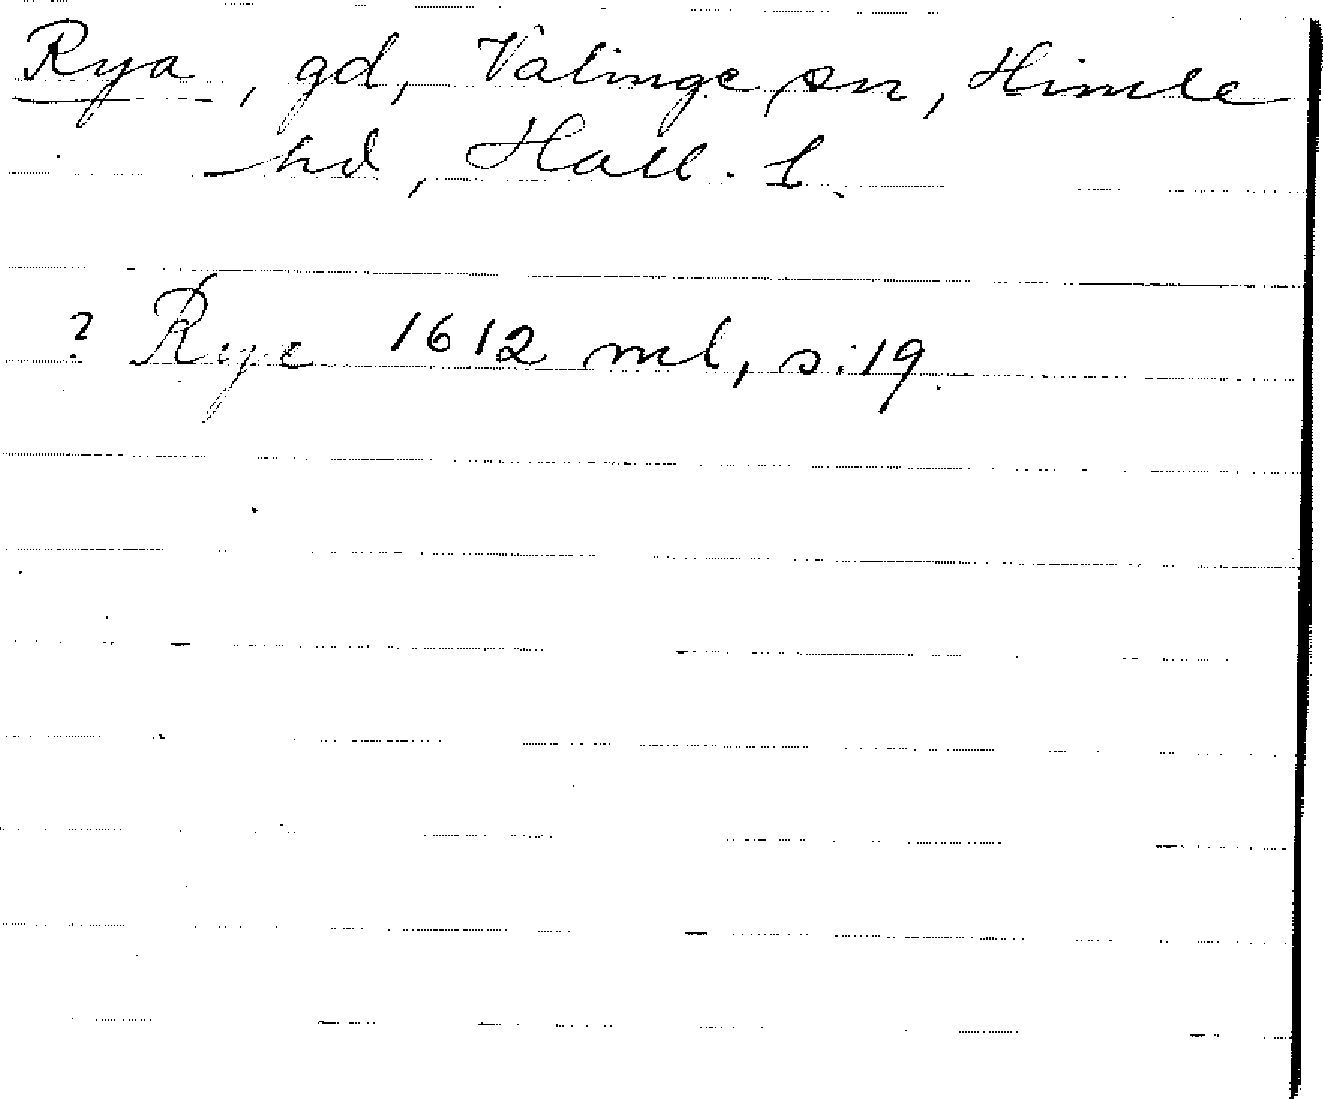 Rya, gd, Valinge sn, Himle
hd, Hall. l.
? Rye 1612 ml, s. 19.